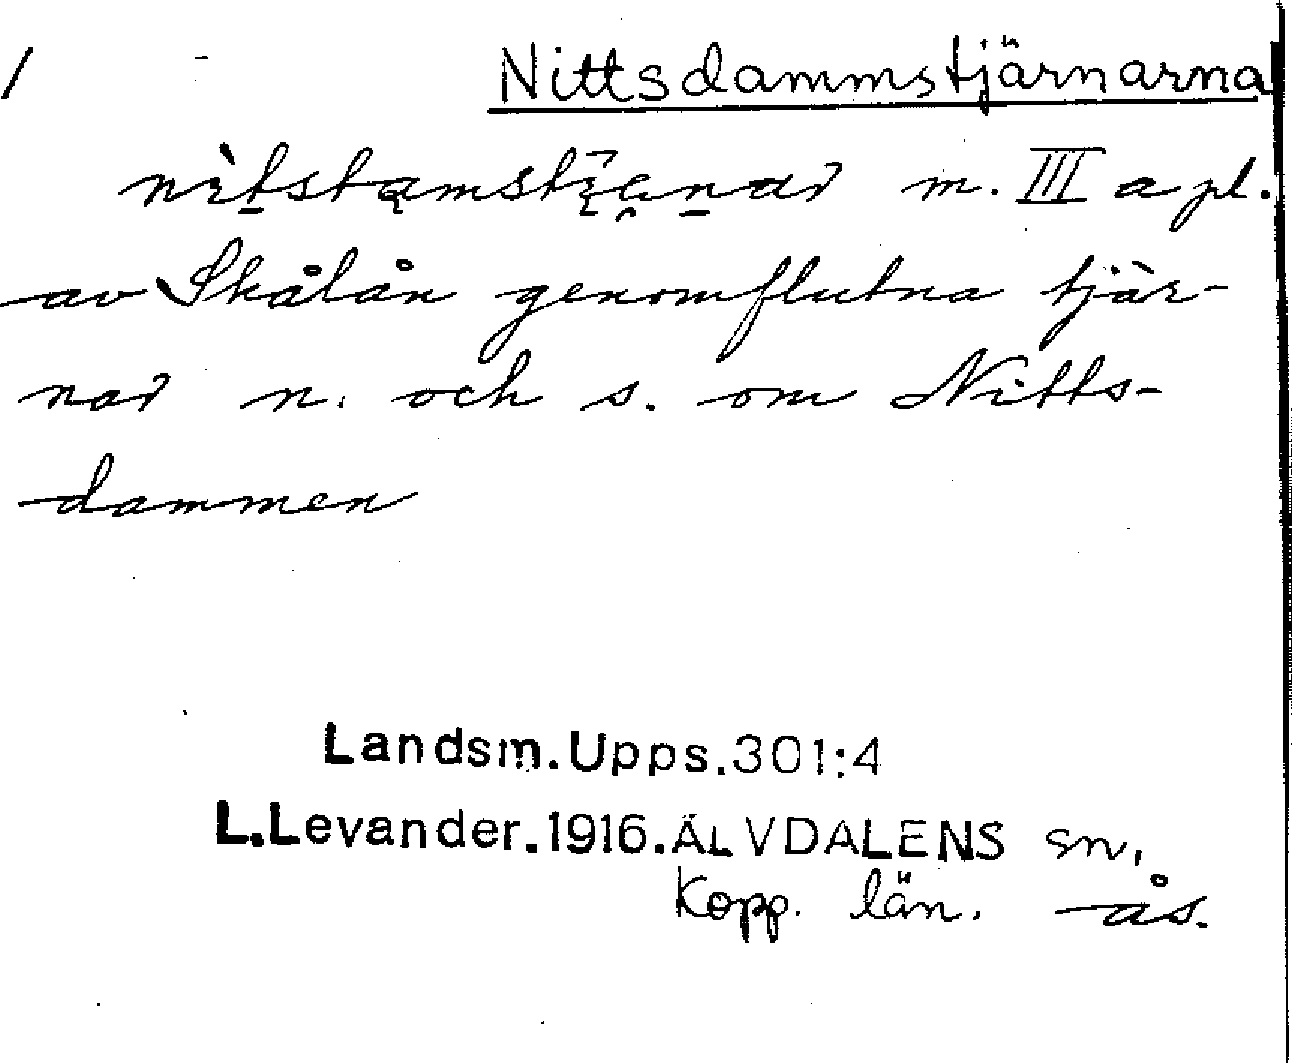 / Nittsdammstjärnarna
m. III a pl.
av Skålån genomflutna tjär-
nar n. och s. om Nitts-
dammen
Landsm.Upps.301:4
L.Levander.1916.ÄLVDALENS sn.
Kopp. län. ås.